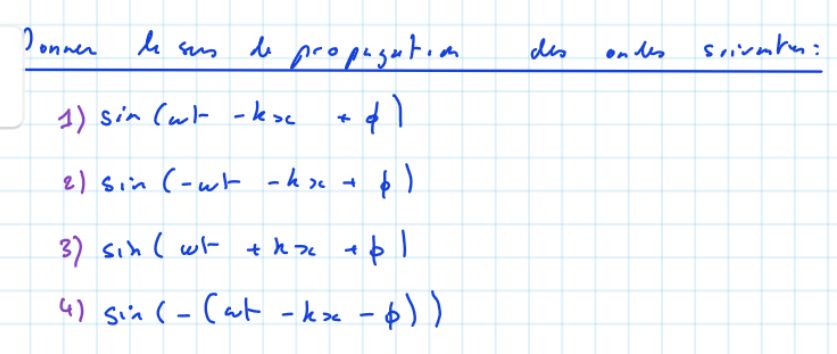 Donner le sens de propagation des ondes suivantes :
1) sin(ωt - kx + ϕ)
2) sin(-ωt - kx + ϕ)
3) sin(ωt + kx + ϕ)
4) sin(-(ωt - kx - ϕ))